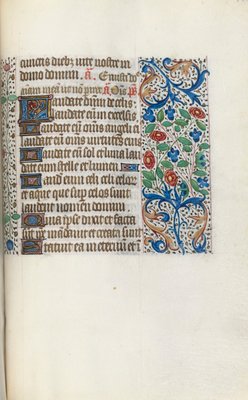 cunctis diebz vite nostre in
domo domini. a
Laudate dnm de celis
laudate eu in excel
Laudate eu oms angeli
laudate eu oms virtutes eius
Laudate eu sol et luna lau
date eum stelle et lumen
Laud eum celi celor
et aque que sup celos sunt
laudent nomen domini
Quia ipse dixit et facta
sut ipe mandavit et creata sunt
Statuit ea in eternu et